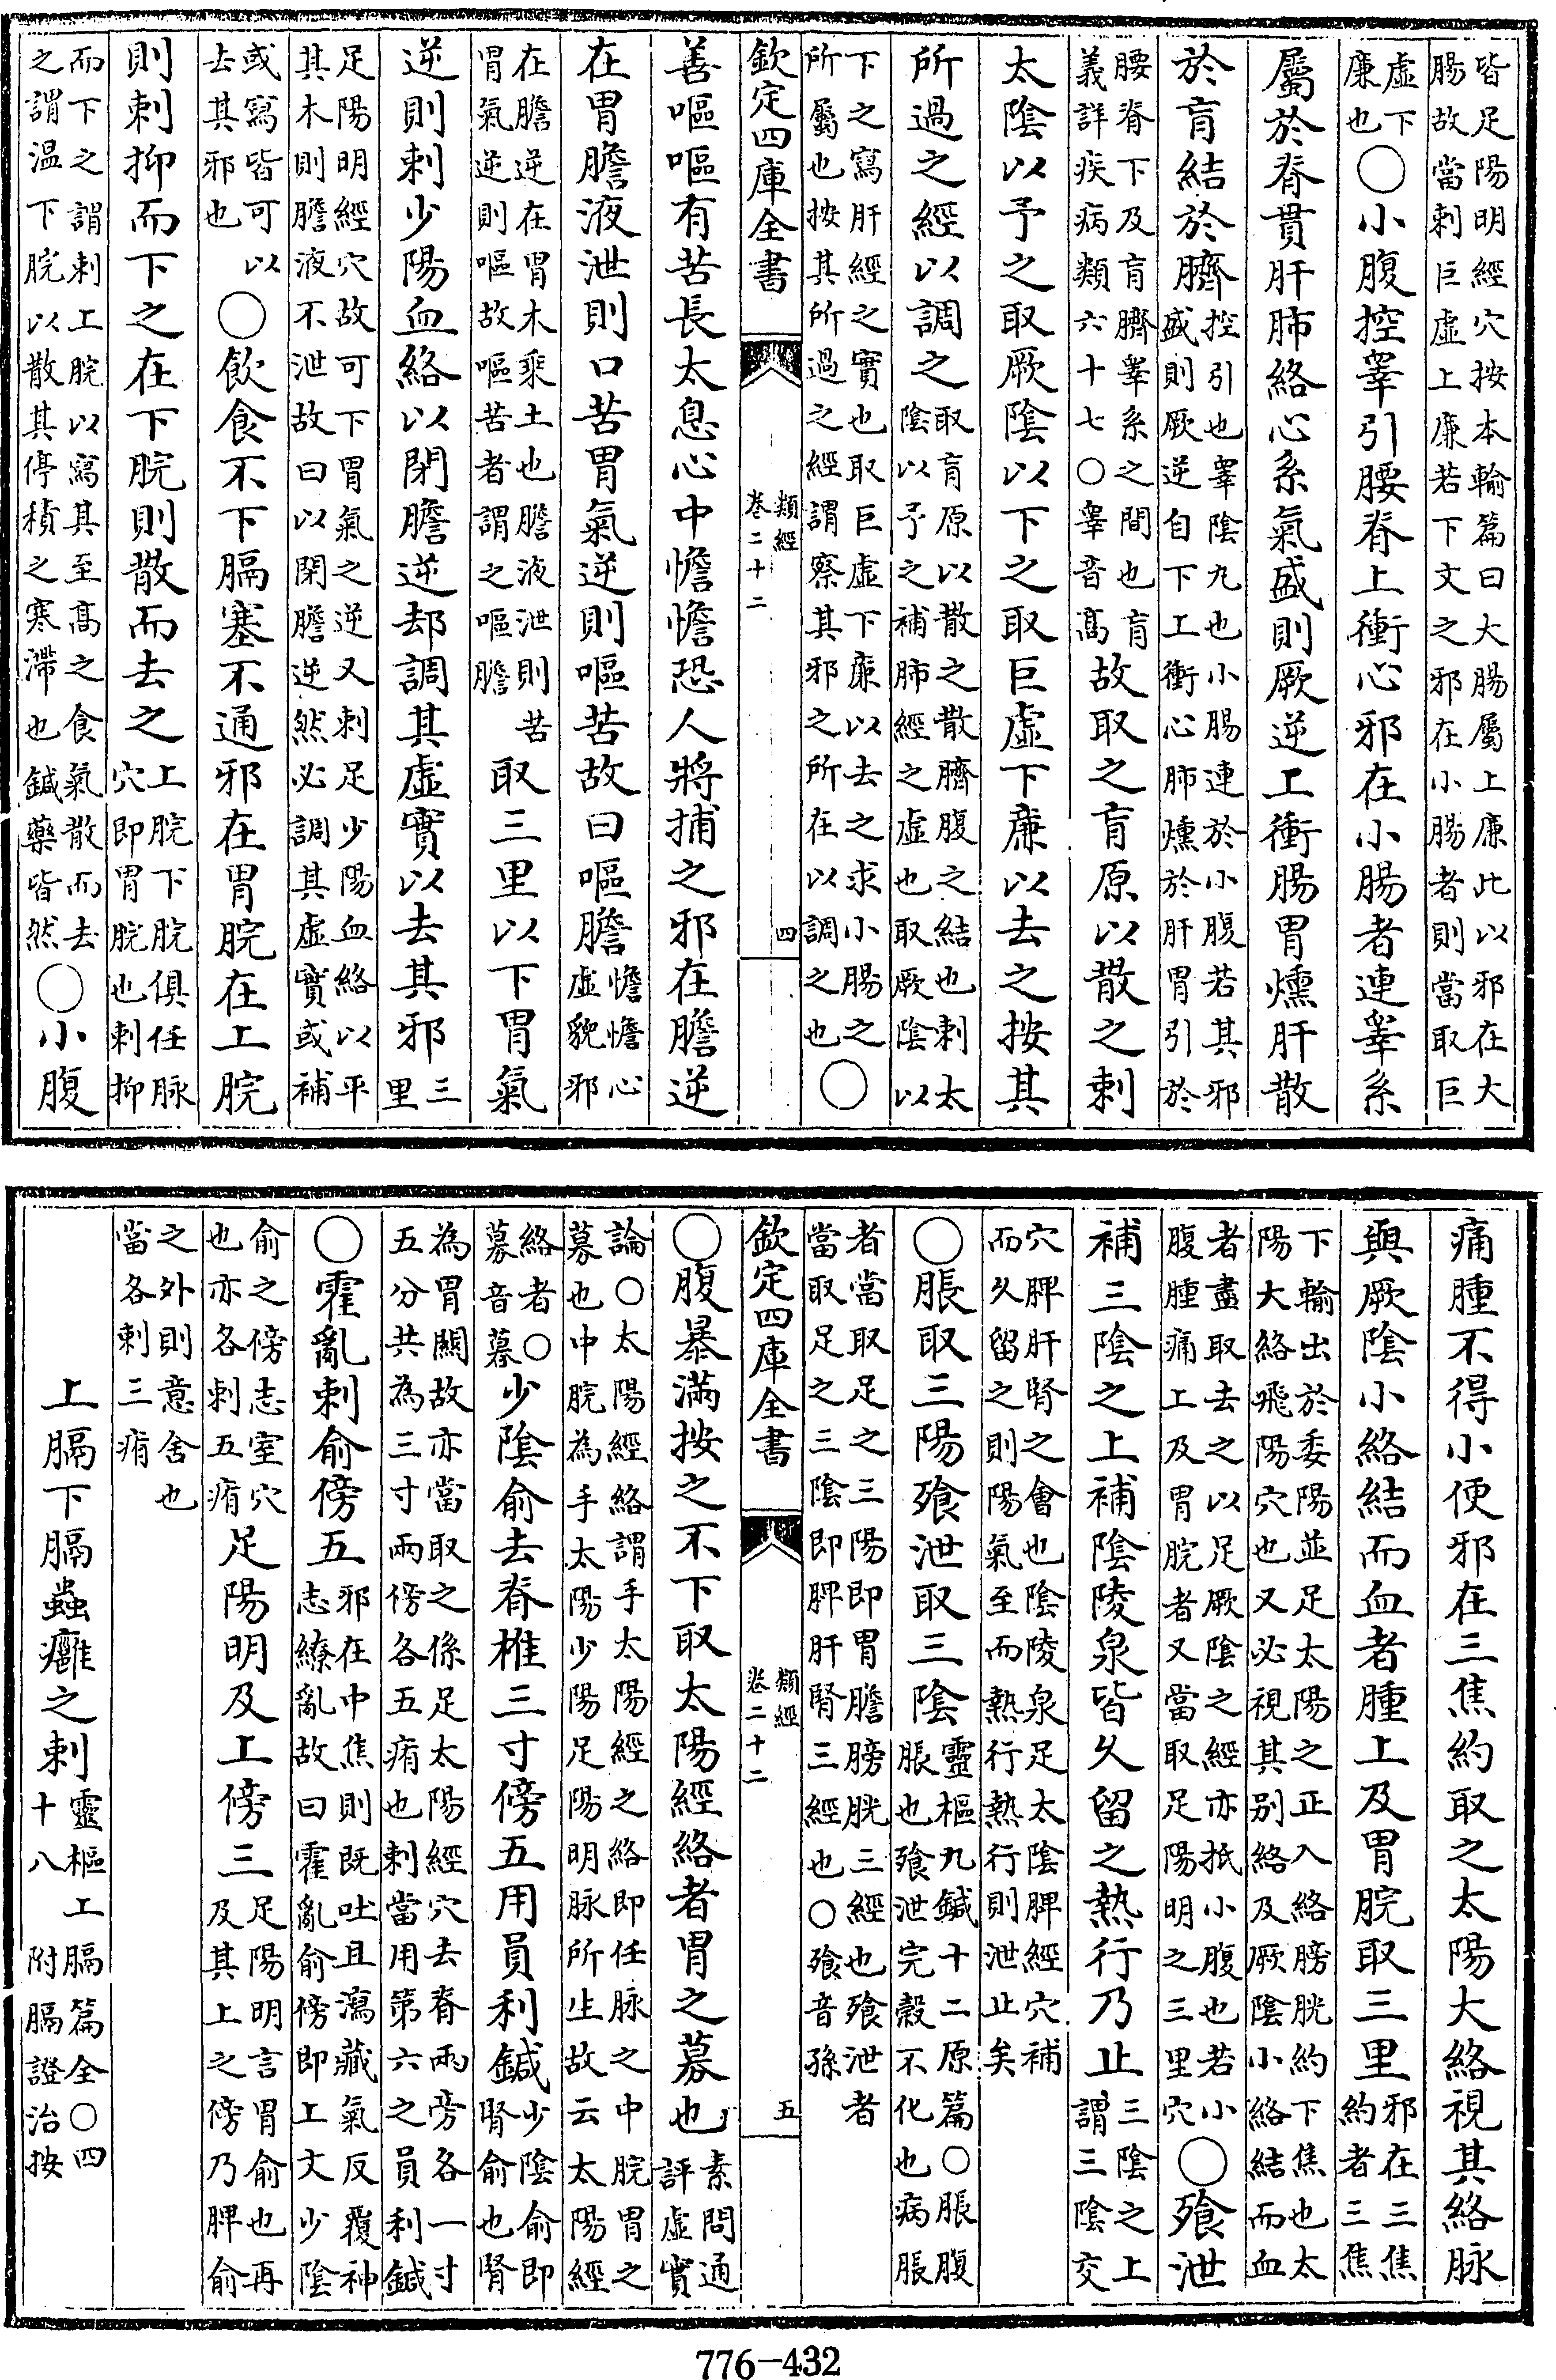 皆足陽明經穴按本輸篇曰大腸屬上廉此以邪在大
腸故當刺巨虛上廉若下文之邪在小腸者則當取巨
虛下廉也○小腹控睪引腰脊上衝心邪在小腸者連睪系
屬於脊貫肝肺絡心系氣盛則厥逆上衝腸胃燻肝散
於肓結於臍控引也睪陰丸也小腸連於小腹若其邪盛則厥逆自下上衝心肺燻於肝胃引於
腰脊下及肓臍睪系之間也肓義詳疾病類六十七○睪音高故取之肓原以散之刺
太陰以予之取厥陰以下之取巨虛下廉以去之按其
所過之經以調之取肓原以散之散臍腹之結也刺太陰以予之補肺經之虛也取厥陰以
下之寫肝經之實也取巨虛下廉以去之求小腸之所屬也按其所過之經謂察其邪之所在以調之也○
欽定四庫全書 類經 卷二十二 四
善嘔嘔有苦長太息心中憺憺恐人將捕之邪在膽逆
在胃膽液泄則口苦胃氣逆則嘔苦故曰嘔膽憺憺心虛貌邪
在膽逆在胃木乘土也膽液泄則苦胃氣逆則嘔故嘔苦者謂之嘔膽取三里以下胃氣
逆則刺少陽血絡以閉膽逆却調其虛實以去其邪三里
足陽明經穴故可下胃氣之逆又刺足少陽血絡以平
其木則膽液不泄故曰以閉膽逆然必調其虛實或補
或寫皆可以去其邪也○飲食不下膈塞不通邪在胃脘在上脘
則刺抑而下之在下脘則散而去之上脘下脘俱任脉穴即胃脘也刺抑
而下之謂刺上脘以寫其至高之食氣散而去之謂温下脘以散其停積之寒滯也鍼藥皆然○小腹
痛腫不得小便邪在三焦約取之太陽大絡視其絡脉
與厥陰小絡結而血者腫上及胃脘取三里邪在三焦約者三焦
下輸出於委陽並足太陽之正入絡膀胱約下焦也太
陽大絡飛陽穴也又必視其别絡及厥陰小絡結而血
者盡取去之以足厥陰之經亦抵小腹也若小腹腫痛上及胃脘者又當取足陽明之三里穴○飧泄
補三陰之上補陰陵泉皆久留之熱行乃止三陰之上謂三陰交
穴脾肝腎之會也陰陵泉足太陰脾經穴補
而久留之則陽氣至而熱行熱行則泄止矣
○脹取三陽飧泄取三陰靈樞九鍼十二原篇○脹腹脹也飧泄完穀不化也病脹
者當取足之三陽即胃膽膀胱三經也飧泄者
當取足之三陰即脾肝腎三經也○飧音孫
欽定四庫全書 類經 卷二十二 五
○腹暴滿按之不下取太陽經絡者胃之募也素問通評虛實
論○太陽經絡謂手太陽經之絡即任脉之中脘胃之
募也中脘為手太陽少陽足陽明脉所生故云太陽經
絡者○募音暮少陰俞去脊椎三寸傍五用員利鍼少陰俞即腎俞也腎
為胃關故亦當取之係足太陽經穴去脊兩旁各一寸
五分共為三寸兩傍各五痏也刺當用第六之員利鍼
○霍亂刺俞傍五邪在中焦則既吐且瀉藏氣反覆神志繚亂故曰霍亂俞傍即上文少陰
俞之傍志室穴也亦各刺五痏足陽明及上傍三足陽明言胃俞也再及其上之傍乃脾俞
之外則意舍也
當各刺三痏
上膈下膈蟲癰之刺靈樞上膈篇全○四十八 附膈證治按
776-432